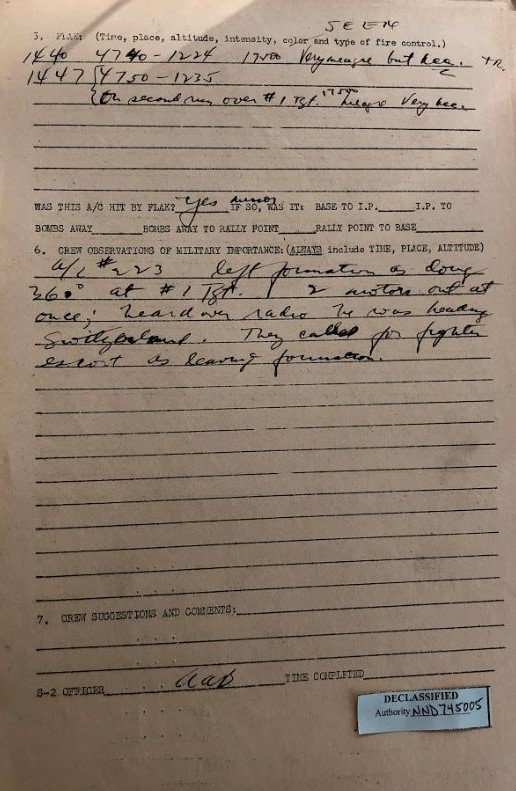 5. FLAK: (Time, place, altitude, intensity, color and type of fire control.)
1440 4740-1224 17500 Very meagre but
1447 4750-1235
On second run over #1 Tgt. 17500 Meagre Very
WAS THIS A/C HIT BY FLAK? Yes minor IF SO, WAS IT: BASE TO I.P. I.P. TO
BOMBS AWAY BOMBS AWAY TO RALLY POINT RALLY POINT TO BASE
6. CREW OBSERVATIONS OF MILITARY IMPORTANCE: (ALWAYS include TIME, PLACE, ALTITUDE)
A/C #223 left formation as doing
360° at #1 Tgt. 2 motors out at
once; heard over radio he was heading
Switzerland. They called for fighter
escort as leaving formation.
7. CREW SUGGESTIONS AND COMMENTS:
S-2 OFFICER TIME COMPLETED
DECLASSIFIED
Authority NND 745005